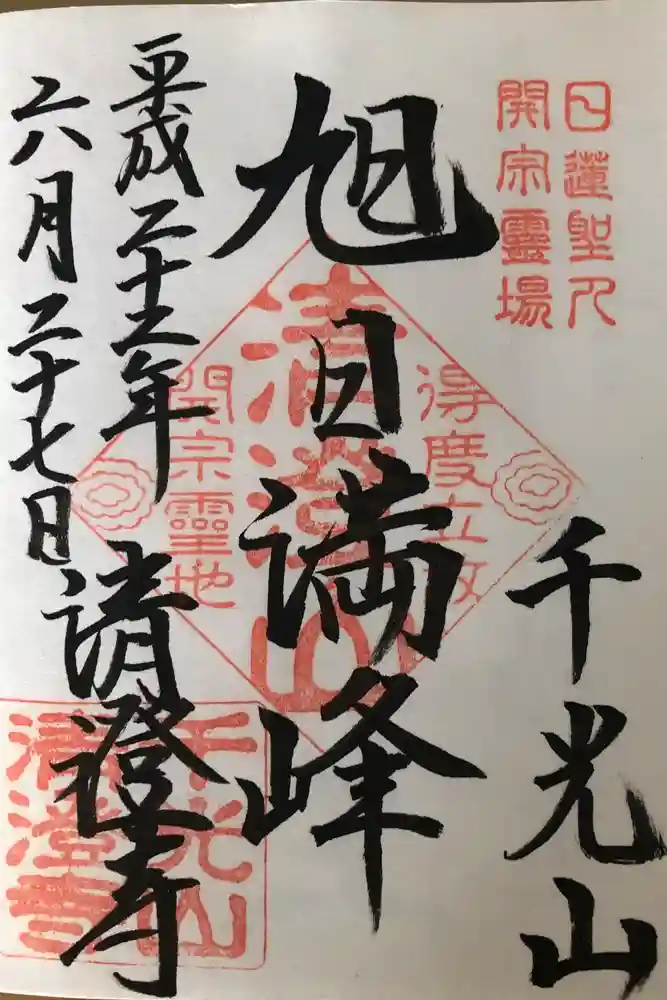 日蓮聖人
開宗靈場
千光山
旭日満峰
得度立教
清澄山
開宗靈地
平成二十三年
六月二十七日
清澄寺
千光山
清澄寺